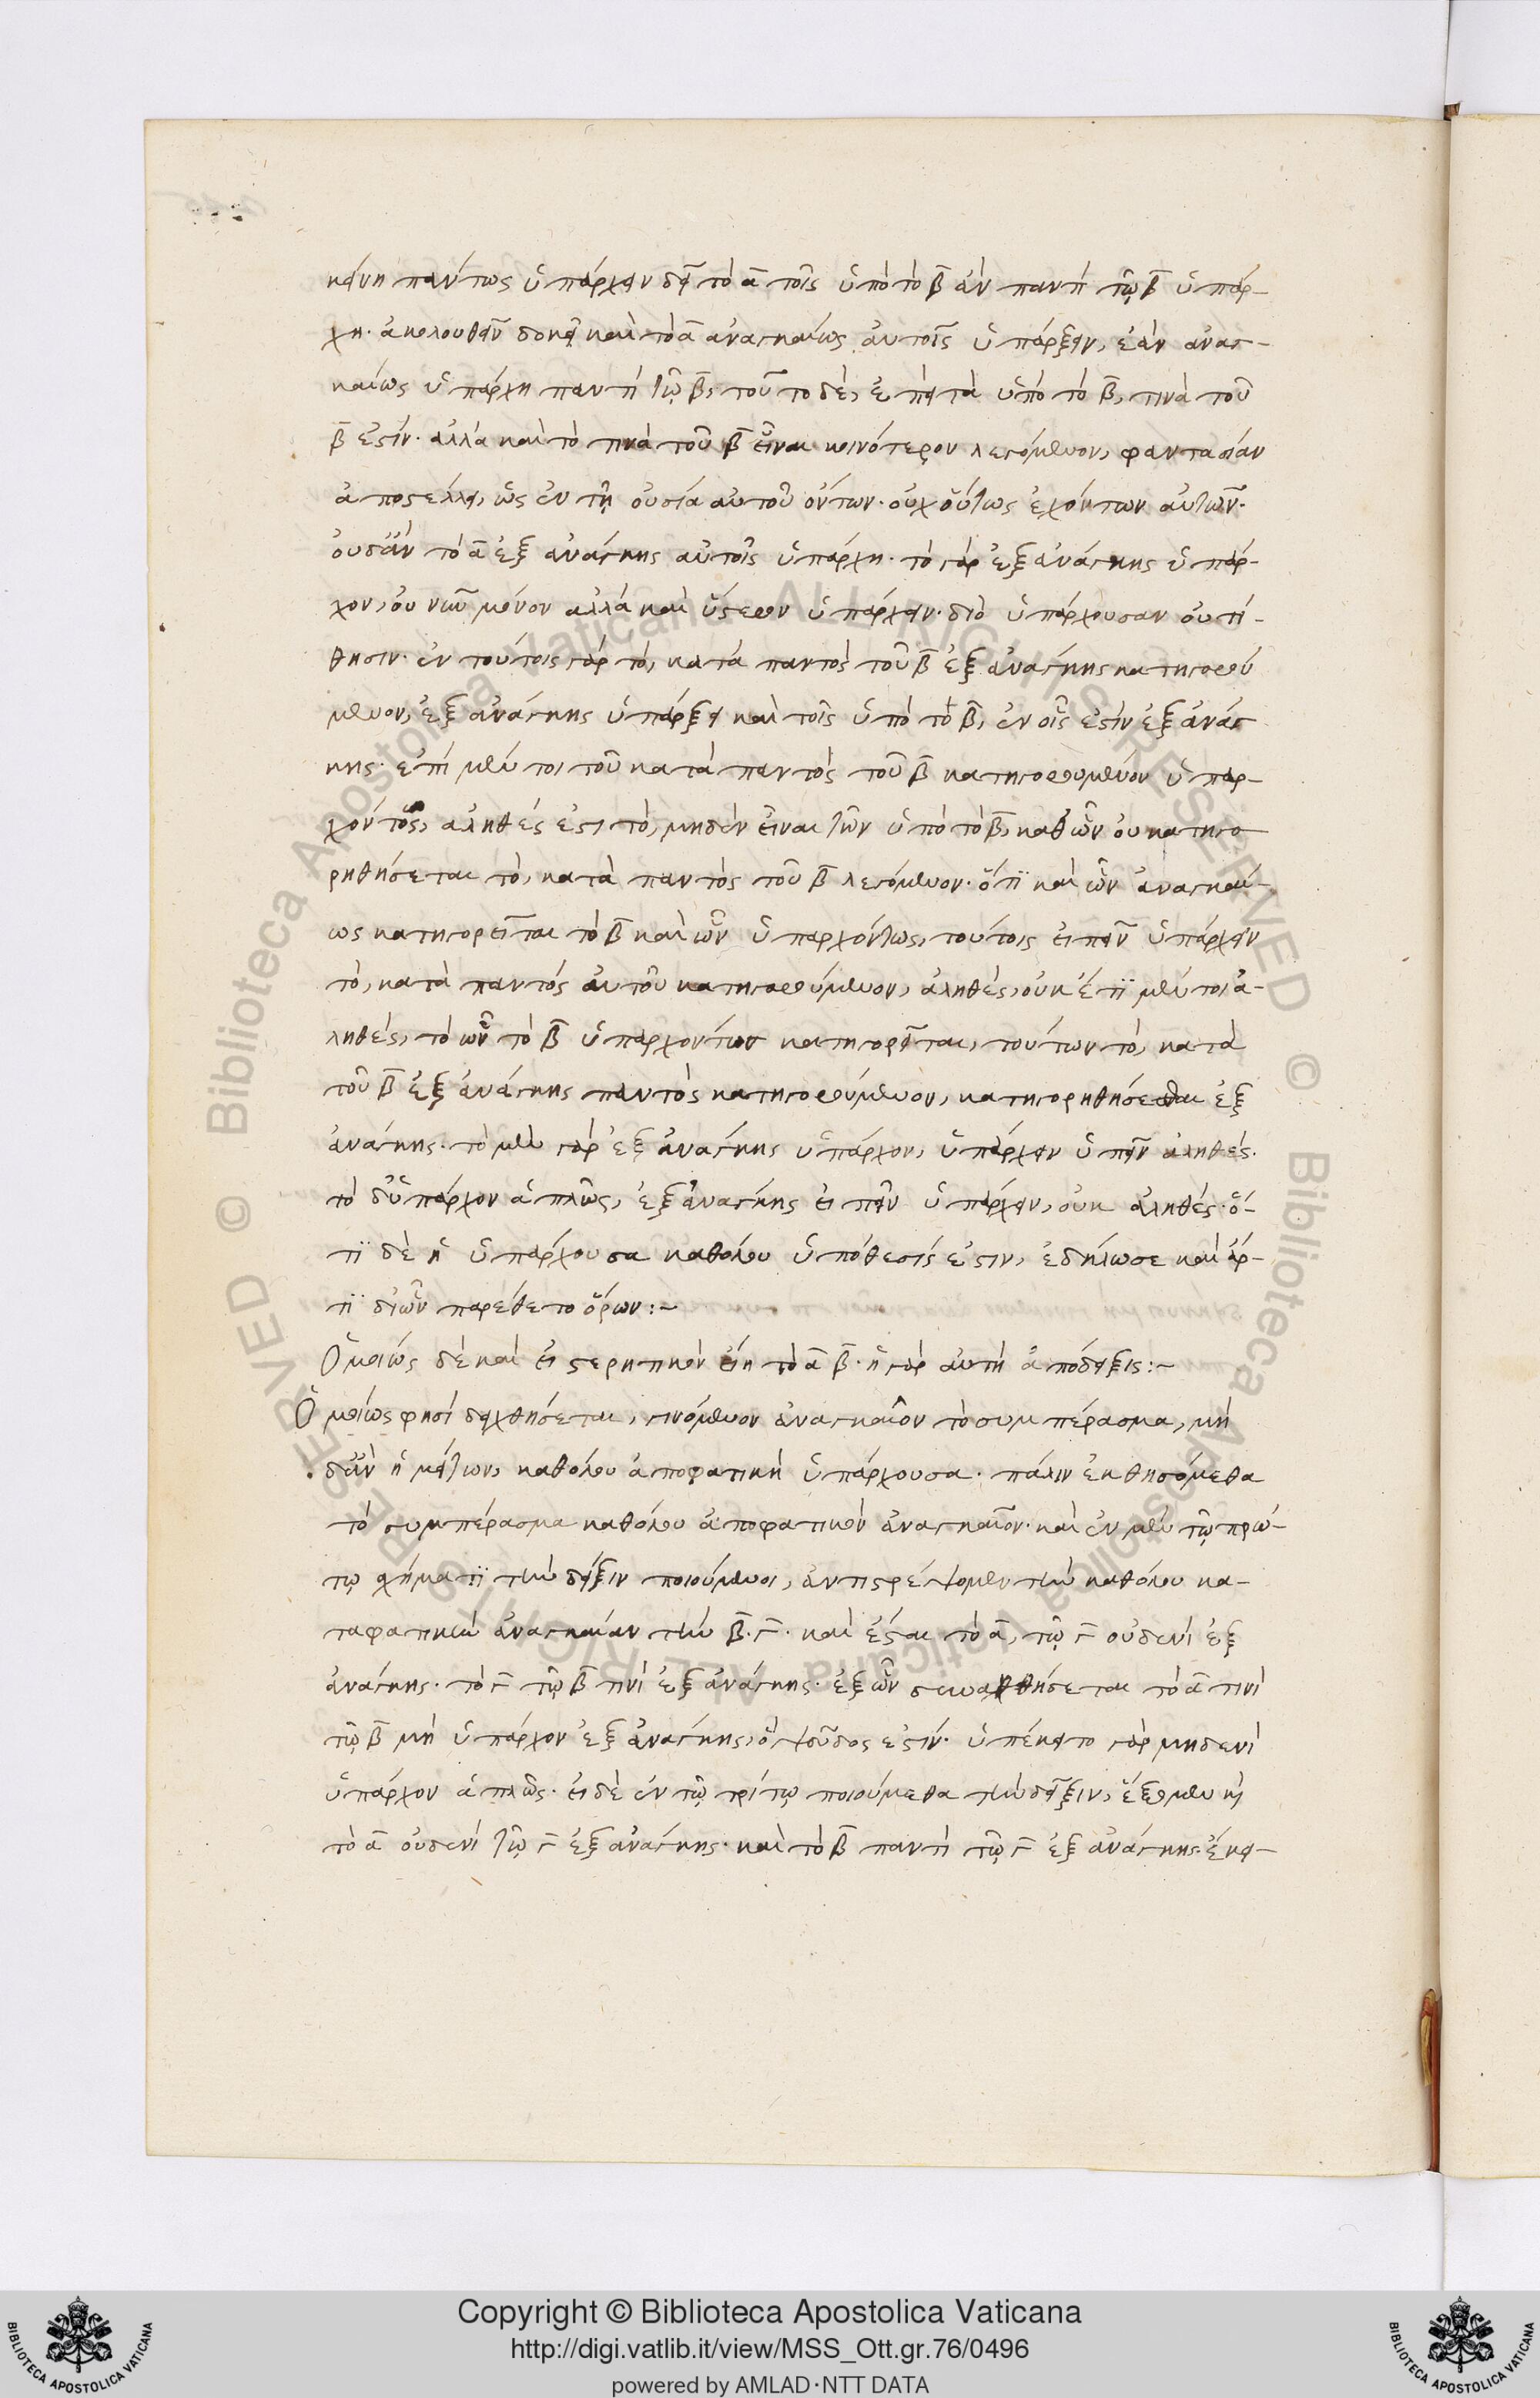 κείνη πάντως ὑπάρχειν δεῖ τὸ α τοῖς ὑπὸ τὸ β ἂν παντὶ τῷ β ὑπάρ-
χη· ἀκολουθεῖν δοκεῖ καὶ τὸ α ἀναγκαίως αὐτοῖς ὑπάρξειν, ἐὰν ἀναγ-
καίως ὑπάρχη παντὶ τῷ β, τοῦτο δὲ, ἐπεὶ τὰ ὑπὸ τὸ β, τινὰ τοῦ
β ἐστίν· ἀλλὰ καὶ τὸ τινὰ τοῦ β εἶναι κοινότερον λεγόμενον, φαντασίαν
ἀποστέλλει, ὡς ἐν τῇ οὐσία αὐτοῦ ὄντων· οὐχ οὕτως ἐχόντων αὐτῶν·
οὐδ' ἂν τὸ α ἐξ ἀνάγκης αὐτοῖς ὑπάρχη· τὸ γὰρ ἐξ ἀνάγκης ὑπάρ-
χον, οὐ νῦν μόνον ἀλλὰ καὶ ὕστερον ὑπάρχειν· διὸ ὑπάρχουσαν οὐ τί-
θησιν· ἐν τούτοις γὰρ τὸ, κατὰ παντὸς τοῦ β ἐξ ἀνάγκης κατηγορού
μενον, ἐξ ἀνάγκης ὑπάρξει καὶ τοῖς ὑπὸ τὸ β, ἐν οἷς ἐστὶν ἐξ ἀνάγ
κης· ἐπὶ μέν τοι τοῦ κατὰ παντὸς τοῦ β κατηγορουμένου ὑπαρ-
χόντως, ἀληθές ἐστι τὸ, μηδὲν εἶναι τῶν ὑπὸ τὸ β, καθ' ὧν οὐ κατηγο
ρηθήσεται τὸ, κατὰ παντὸς τοῦ β λεγόμενον· ὅτι καὶ ὧν ἀναγκαί-
ως κατηγορεῖται τὸ β καὶ ὧν ὑπαρχόντως, τούτοις εἰπεῖν ὑπάρχειν
τὸ, κατὰ παντός αὐτοῦ κατηγορούμενον, ἀληθές, οὐκ έτι μέν τοι ἀ-
ληθές, τὸ ὧν τὸ β ὑπαρχόντων κατηγορεῖται, τούτων τὸ, κατὰ
τοῦ β ἐξ ἀνάγκης παντὸς κατηγορούμενον, κατηγορηθήσεσθαι ἐξ
ἀνάγκης· τὸ μὲν γὰρ ἐξ ἀνάγκης ὑπάρχον, ὑπάρχειν εἰπεῖν ἀληθές·
τὸ δ' ὑπάρχον ἁπλῶς, ἐξ ἀνάγκης εἰπεῖν ὑπάρχειν, οὐκ ἀληθές· ὅ-
τι δὲ ἡ ὑπάρχουσα καθόλου ὑπόθεσίς ἐστιν, ἐδήλωσε καὶ ἄρ-
τι δι' ὧν παρέθετο ὅρων:~
Ὁμοίως δὲ καὶ εἰ στερητικὸν εἴη τὸ α β· ἡ γὰρ αὐτὴ ἀπόδειξις:~
Ὁμοίως φησὶ δειχθήσεται, γινόμενον ἀναγκαῖον τὸ συμπέρασμα, μὴ
δ' ἂν ἡ μείζων, καθόλου ἀποφατικὴ ὑπάρχουσα· πάλιν ἐκθησόμεθα
τὸ συμπέρασμα καθόλου ἀποφατικὸν ἀναγκαῖον· καὶ ἐν μὲν τῷ πρώ-
τῳ σχήματι τὴν δεῖξιν ποιούμενοι, ἀντιστρέψομεν τὴν καθόλου κα-
ταφατικὴν ἀναγκαίαν τὴν β. γ· καὶ ἔσται τὸ α, τῷ γ οὐδενὶ ἐξ
ἀνάγκης· τὸ γ τῷ β τινὶ ἐξ ἀνάγκης· ἐξ ὧν συναχθήσεται τὸ α τινὶ
τῷ β μὴ ὑπάρχον ἐξ ἀνάγκης, ὃ ψεῦδος ἐστίν· ὑπέκειτο γὰρ μηδενὶ
ὑπάρχον ἁπλῶς· εἰ δὲ ἐν τῷ τρίτῳ ποιούμεθα τὴν δεῖξιν, ἕξομεν καὶ
τὸ α οὐδενὶ τῷ γ ἐξ ἀνάγκης· καὶ τὸ β παντὶ τῷ γ ἐξ ἀνάγκης· ἔκει-
Copyright © Biblioteca Apostolica Vaticana
http://digi.vatlib.it/view/MSS_Ott.gr.76/0496
powered by AMLAD·NTT DATA